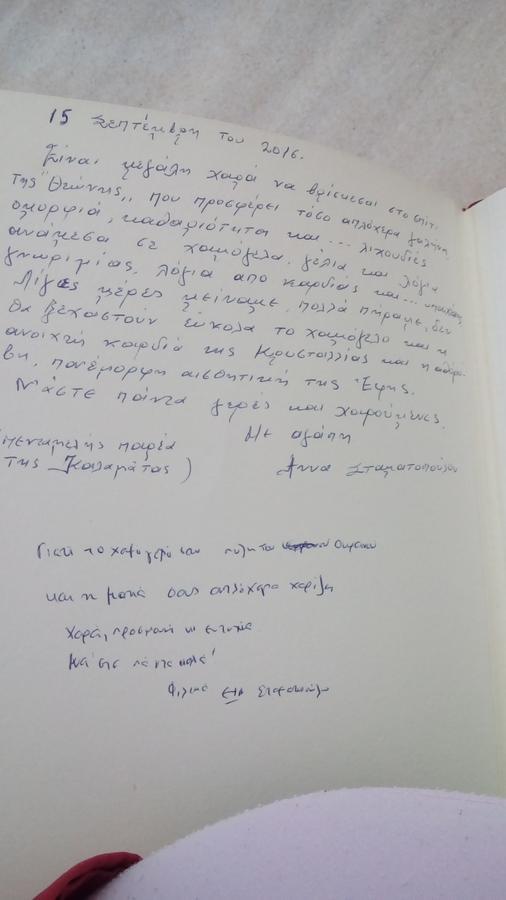 15 Σεπτέμβρη του 2016.
Είναι μεγάλη χαρά να βρίσκεσαι στο σπίτι
της "Θεώνης,, που προσφέρει τόσο απλόχερα γαλήνη,
ομορφιά, καθαριότητα και... λιχουδιές
ανάμεσα σε χαμόγελα, γέλια και λόγια
γνωριμίας, λόγια από καρδιάς και...
Λίγες μέρες μείναμε, πολλά πήραμε, δεν
θα ξεχαστούν εύκολα το χαμόγελο και η
ανοιχτή καρδιά της Κρυσταλλίας και η αθόρυ-
βη, πανέμορφη αισθητική της Έφης.
Νάστε πάντα γερές και χαρούμενες.
Με αγάπη
(πενταμελής παρέα
της Καλαμάτας)
Άννα Σταματοπούλου
Γιατί το χαμόγελό σαν του ουρανού
και η ματιά σας απλόχερα χαρίζει
χαρά, προσμονή κι ευτυχία
Νά στε πάντα καλά!
Φιλικά